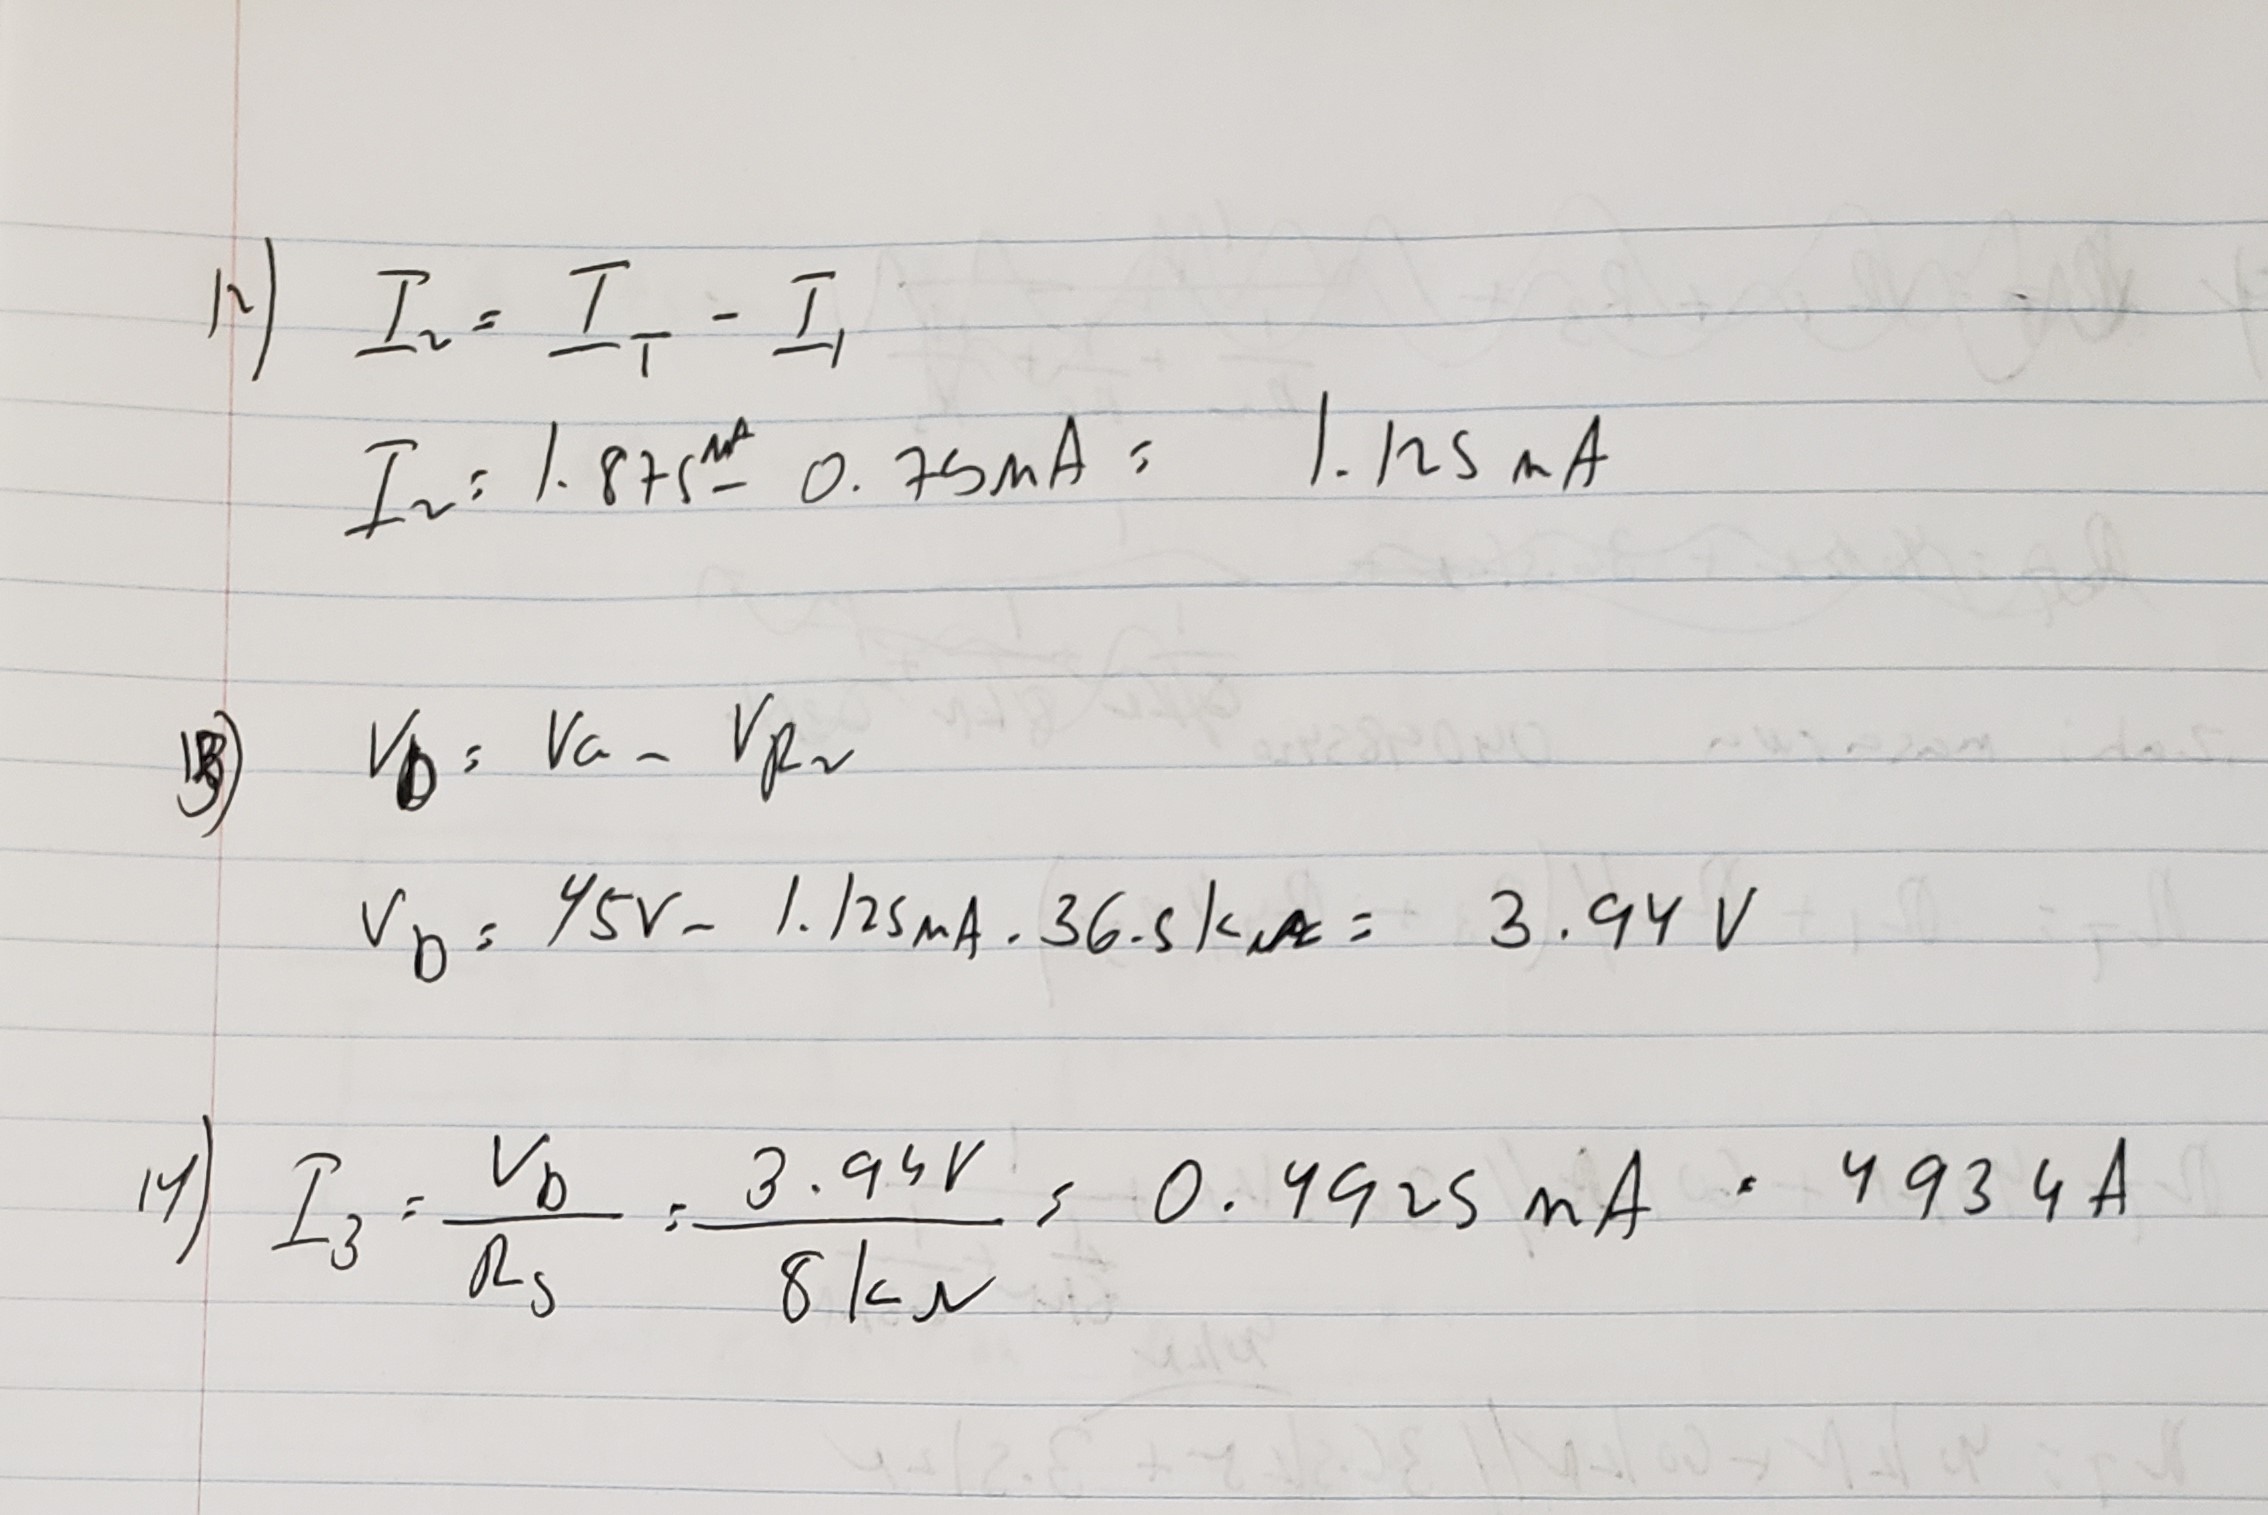 12) I₂ = I_T - I₁
I₂ = 1.875mA - 0.75mA = 1.125 mA
13) V_b = Va - V_R₂
V_b = 45V - 1.125mA . 36.5kΩ = 3.94 V
14) I₃ = V_b / R₅ = 3.94V / 8kΩ = 0.4925 mA = 493μA